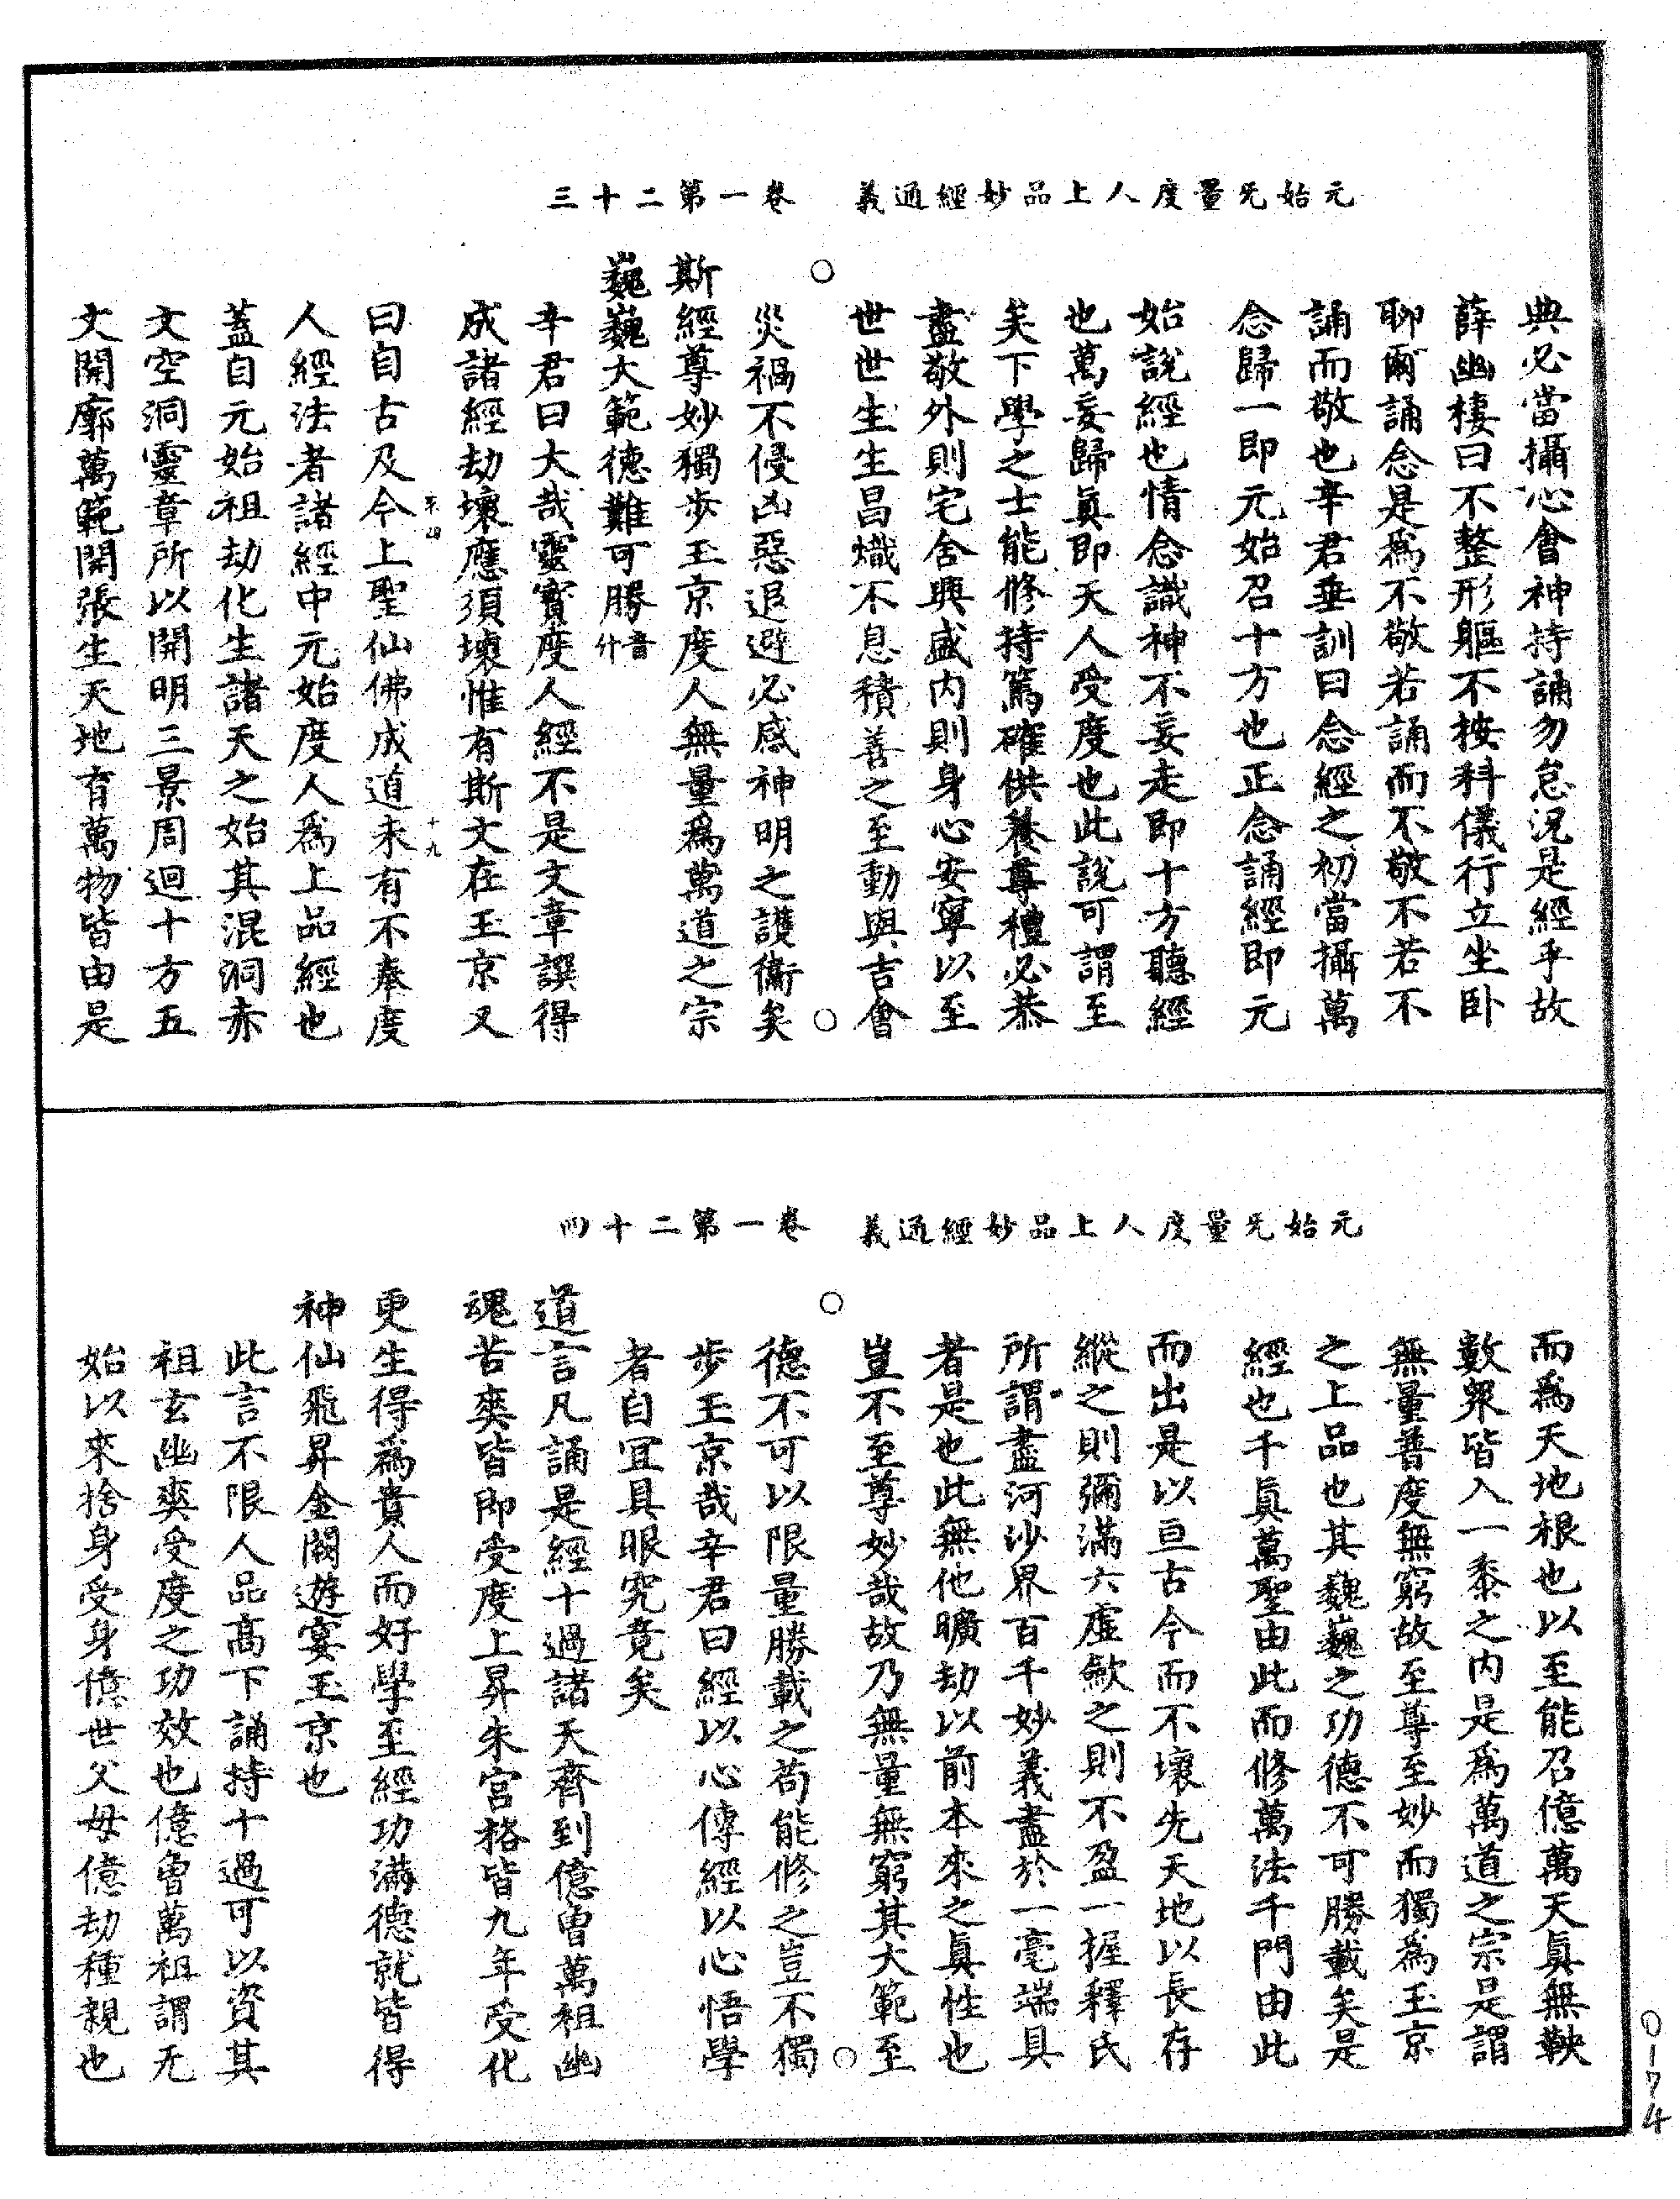 元始无量度人上品妙經通義　卷一第二十三
典必當攝心會神持誦勿怠況是經乎故
薛幽棲曰不整形軀不按科儀行立坐卧
聊爾誦念是爲不敬若誦而不敬不若不
誦而敬也辛君垂訓曰念經之初當攝萬
念歸一即元始召十方也正念誦經即元
始說經也情念識神不妄走即十方聽經
也萬妄歸眞即天人受度也此說可謂至
矣下學之士能修持篤確供養尊禮必恭
盡敬外則宅舍興盛内則身心安寧以至
世世生生昌熾不息積善之至動與吉會
災禍不侵凶惡退避必感神明之護衞矣
斯經尊妙獨步玉京度人無量爲萬道之宗
巍巍大範德難可勝音什
辛君曰大哉靈寶度人經不是文章譔得
成諸經劫壞應須壞惟有斯文在玉京又
曰自古及今上聖仙佛成道未有不奉度
人經法者諸經中元始度人爲上品經也
蓋自元始祖劫化生諸天之始其混洞赤
文空洞靈章所以開明三景周迴十方五
文開廓萬範開張生天地育萬物皆由是
元始无量度人上品妙經通義　卷一第二十四
而爲天地根也以至能召億萬天眞無鞅
數衆皆入一黍之内是爲萬道之宗是謂
無量普度無窮故至尊至妙而獨爲玉京
之上品也其巍巍之功德不可勝載矣是
經也千眞萬聖由此而修萬法千門由此
而出是以亘古今而不壞先天地以長存
縱之則彌滿六虛歛之則不盈一握釋氏
所謂盡河沙界百千妙義盡於一毫端具
者是也此無他曠劫以前本來之眞性也
豈不至尊妙哉故乃無量無窮其大範至
德不可以限量勝載之苟能修之豈不獨
步玉京哉辛君曰經以心傳經以心悟學
者自宜具眼究竟矣
道言凡誦是經十過諸天齊到億曾萬祖幽
魂苦爽皆即受度上昇朱宫格皆九年受化
更生得爲貴人而好學至經功滿德就皆得
神仙飛昇金闕遊宴玉京也
此言不限人品髙下誦持十過可以資其
祖玄幽爽受度之功效也億曾萬祖謂无
始以來捨身受身億世父母億劫種親也
0-174